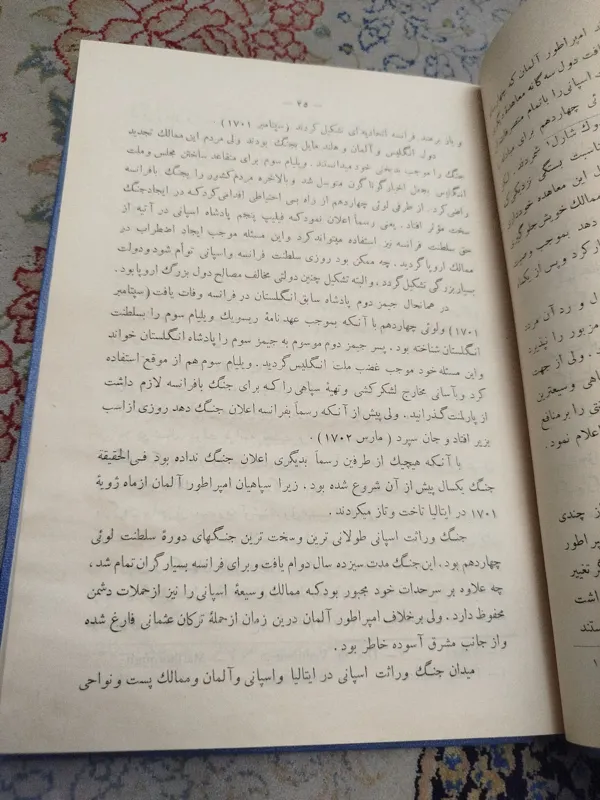 — ۲۵ —
و باز برضد فرانسه اتحادیه‌ای تشکیل کردند (سپتامبر ۱۷۰۱)
دول انگلیس و آلمان و هلند مایل بجنگ بودند ولی مردم این ممالک تجدید
جنگ را موجب بدبختی خود میدانستند. ویلیام سوم برای متقاعد ساختن مجلس و ملت
انگلیس بجعل اخبار گوناگون متوسل شد و بالاخره مردم کشور را بجنگ با فرانسه
راضی کرد. از طرفی لوئی چهاردهم از راه بی احتیاطی اقدامی کرد که در ایجاد جنگ
سخت مؤثر افتاد. یعنی رسماً اعلان نمود که فیلیپ پنجم پادشاه اسپانی در آتیه از
حق سلطنت فرانسه نیز استفاده میتواند کرد و این مسئله موجب ایجاد اضطراب در
ممالک اروپا گردید. چه ممکن بود روزی سلطنت فرانسه و اسپانی توأم شود و دولت
بسیار بزرگی تشکیل گردد، و البته تشکیل چنین دولتی مخالف مصالح دول بزرگ اروپا بود.
در همانحال جیمز دوم پادشاه سابق انگلستان در فرانسه وفات یافت (سپتامبر
۱۷۰۱) و لوئی چهاردهم با آنکه بموجب عهدنامهٔ ریسویک ویلیام سوم را بسلطنت
انگلستان شناخته بود. پسر جیمز دوم موسوم به جیمز سوم را پادشاه انگلستان خواند
و این مسئله خود موجب غضب ملت انگلیس گردید. ویلیام سوم هم از موقع استفاده
کرد و بآسانی مخارج لشکر کشی و تهیهٔ سپاهی را که برای جنگ با فرانسه لازم داشت
از پارلمنت گذرانید. ولی پیش از آنکه رسماً بفرانسه اعلان جنگ دهد روزی از اسب
بزیر افتاد و جان سپرد (مارس ۱۷۰۲).
با آنکه هیچیک از طرفین رسماً بدیگری اعلان جنگ نداده بود فی‌الحقیقة
جنگ یکسال پیش از آن شروع شده بود. زیرا سپاهیان امپراطور آلمان از ماه ژویهٔ
۱۷۰۱ در ایتالیا تاخت و تاز میکردند.
جنگ وراثت اسپانی طولانی ترین و سخت ترین جنگهای دورهٔ سلطنت لوئی
چهاردهم بود. این جنگ مدت سیزده سال دوام یافت و برای فرانسه بسیار گران تمام شد،
چه علاوه بر سرحدات خود مجبور بود که ممالک وسیعهٔ اسپانی را نیز از حملات دشمن
محفوظ دارد. ولی برخلاف امپراطور آلمان درین زمان از حملهٔ ترکان عثمانی فارغ شده
و از جانب مشرق آسوده خاطر بود.
میدان جنگ وراثت اسپانی در ایتالیا و اسپانی و آلمان و ممالک پست و نواحی